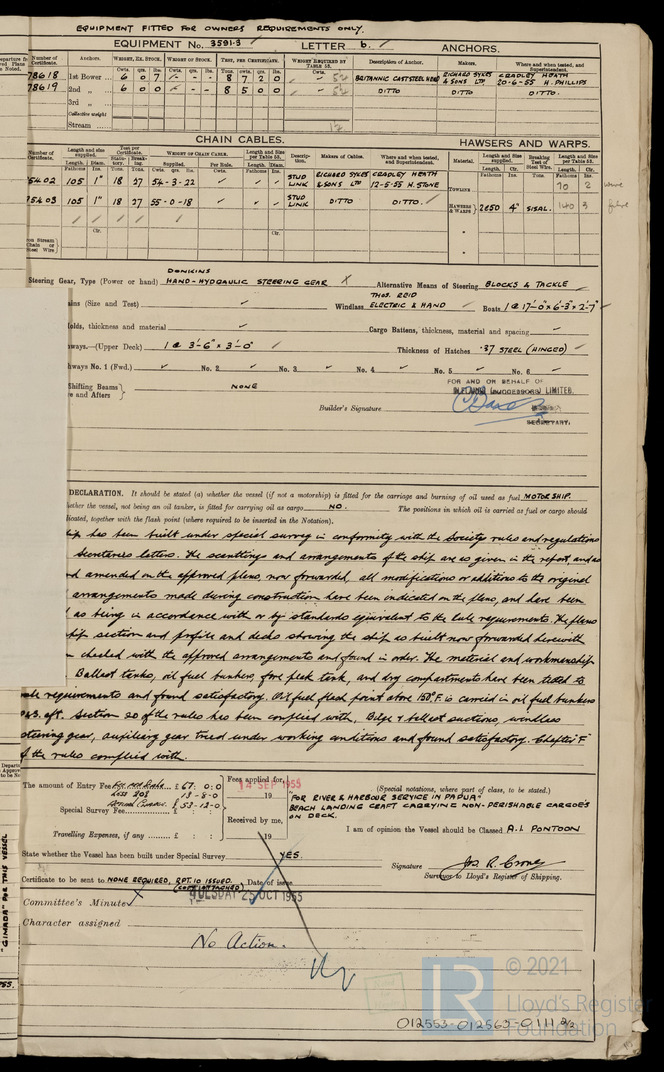 EQUIPMENT FITTED FOR OWNERS REQUIREMENTS ONLY.
EQUIPMENT No. 3591·3 LETTER b. ANCHORS.
Number of Certificate. Anchors. WEIGHT, EX. STOCK. WEIGHT OF STOCK. TEST, PER CERTIFICATE. WEIGHT REQUIRED BY TABLE 53. Description of Anchor. Makers. Where and when tested, and Superintendent.
Cwts. qrs. lbs. Cwts. qrs. lbs. Tons. cwts. qrs. lbs. Cwts.
78618 1st Bower 6 0 7 - - - 8 7 2 0 BRITANNIC CAST STEEL HEAD RICHARD SYKES & SONS LTD CRADLEY HEATH 20-6-55 H. PHILLIPS
78619 2nd „ 6 0 0 - - - 8 5 0 0 DITTO DITTO DITTO.
3rd „
Collective weight
Stream
CHAIN CABLES. HAWSERS AND WARPS.
Number of Certificate. Length and size supplied. Test per Certificate. WEIGHT OF CHAIN CABLE. Length and Size per Table 53. Description. Makers of Cables. Where and when tested, and Superintendent. Material. Length and Size supplied. Breaking Test of Steel Wire. Length and Size per Table 53.
Length. Diam. Statutory. Breaking. Supplied. Per Rule. Length. Diam. Length. Cir. Length. Cir.
5402 105 1" 18 27 54-3-22 STUD LINK RICHARD SYKES & SONS LTD CRADLEY HEATH 12-5-55 H. STONE
TOWLINE 70 2
5403 105 1" 18 27 55-0-18 STUD LINK DITTO DITTO.
HAWSERS & WARPS 2@50 4" SISAL. 140 3
DONKINS
Steering Gear, Type (Power or hand) HAND-HYDRAULIC STEERING GEAR Alternative Means of Steering BLOCKS & TACKLE
THOS. REID
ains (Size and Test) Windlass ELECTRIC & HAND Boats 1 @ 17'-0" x 6'-3" x 2'-7"
olds, thickness and material Cargo Battens, thickness, material and spacing
ways.—(Upper Deck) 1 @ 3'-6" x 3'-0" Thickness of Hatches ·37 STEEL (HINGED)
hways No. 1 (Fwd.) No. 2 No. 3 No. 4 No. 5 No. 6
Shifting Beams
e and Afters NONE
FOR AND ON BEHALF OF
(SUCCESSORS) LIMITED.
Builder's Signature
SECRETARY.
DECLARATION. It should be stated (a) whether the vessel (if not a motorship) is fitted for the carriage and burning of oil used as fuel MOTORSHIP.
hether the vessel, not being an oil tanker, is fitted for carrying oil as cargo NO. The positions in which oil is carried as fuel or cargo should
licated, together with the flash point (where required to be inserted in the Notation).
hip has been built under special survey in conformity with the Society rules and regulations
Secretaries letters. The scantlings and arrangements of the ship are as given in the report, and as
d amended on the approved plans, now forwarded, all modifications or additions to the original
arrangements made during construction have been indicated on the plans, and have been
as being in accordance with or by standards equivalent to the rule requirements. The plans
hip section and profile and decks showing the ship as built now forwarded herewith
n checked with the approved arrangements and found in order. The material and workmanship
Ballast tanks, oil fuel bunkers, fore peak tank, and dry compartments have been tested to
rule requirements and found satisfactory. Oil fuel, flash point above 150°F. is carried in oil fuel bunkers
aft. Section 20 of the rules has been complied with. Bilge & ballast suctions, windlass
steering gear, auxiliary gear tried under working conditions and found satisfactory. Chapter F
f the rules complied with.
The amount of Entry Fee £ 67: 0: 0
Less 20% 13-8-0
£ 53-12-0
Special Survey Fee
Travelling Expenses, if any £ : :
Fees applied for,
14 SEP 1955
19
Received by me,
19
(Special notations, where part of class, to be stated.)
"FOR RIVER & HARBOUR SERVICE IN PAPUA"
BEACH LANDING CRAFT CARRYING NON-PERISHABLE CARGOES
ON DECK.
I am of opinion the Vessel should be Classed A.1. PONTOON
State whether the Vessel has been built under Special Survey YES.
Signature Jas R. Crone
Surveyor to Lloyd's Register of Shipping.
Certificate to be sent to NONE REQUIRED, RPT. 10 ISSUED. Date of issue
(COPY ATTACHED)
TUESDAY 25 OCT 1955
Committee's Minute
Character assigned
No Action.
"GIMADA" FOR THIS VESSEL
LR
© 2021
Lloyd's Register
Foundation
012553-012563-0111 2/2